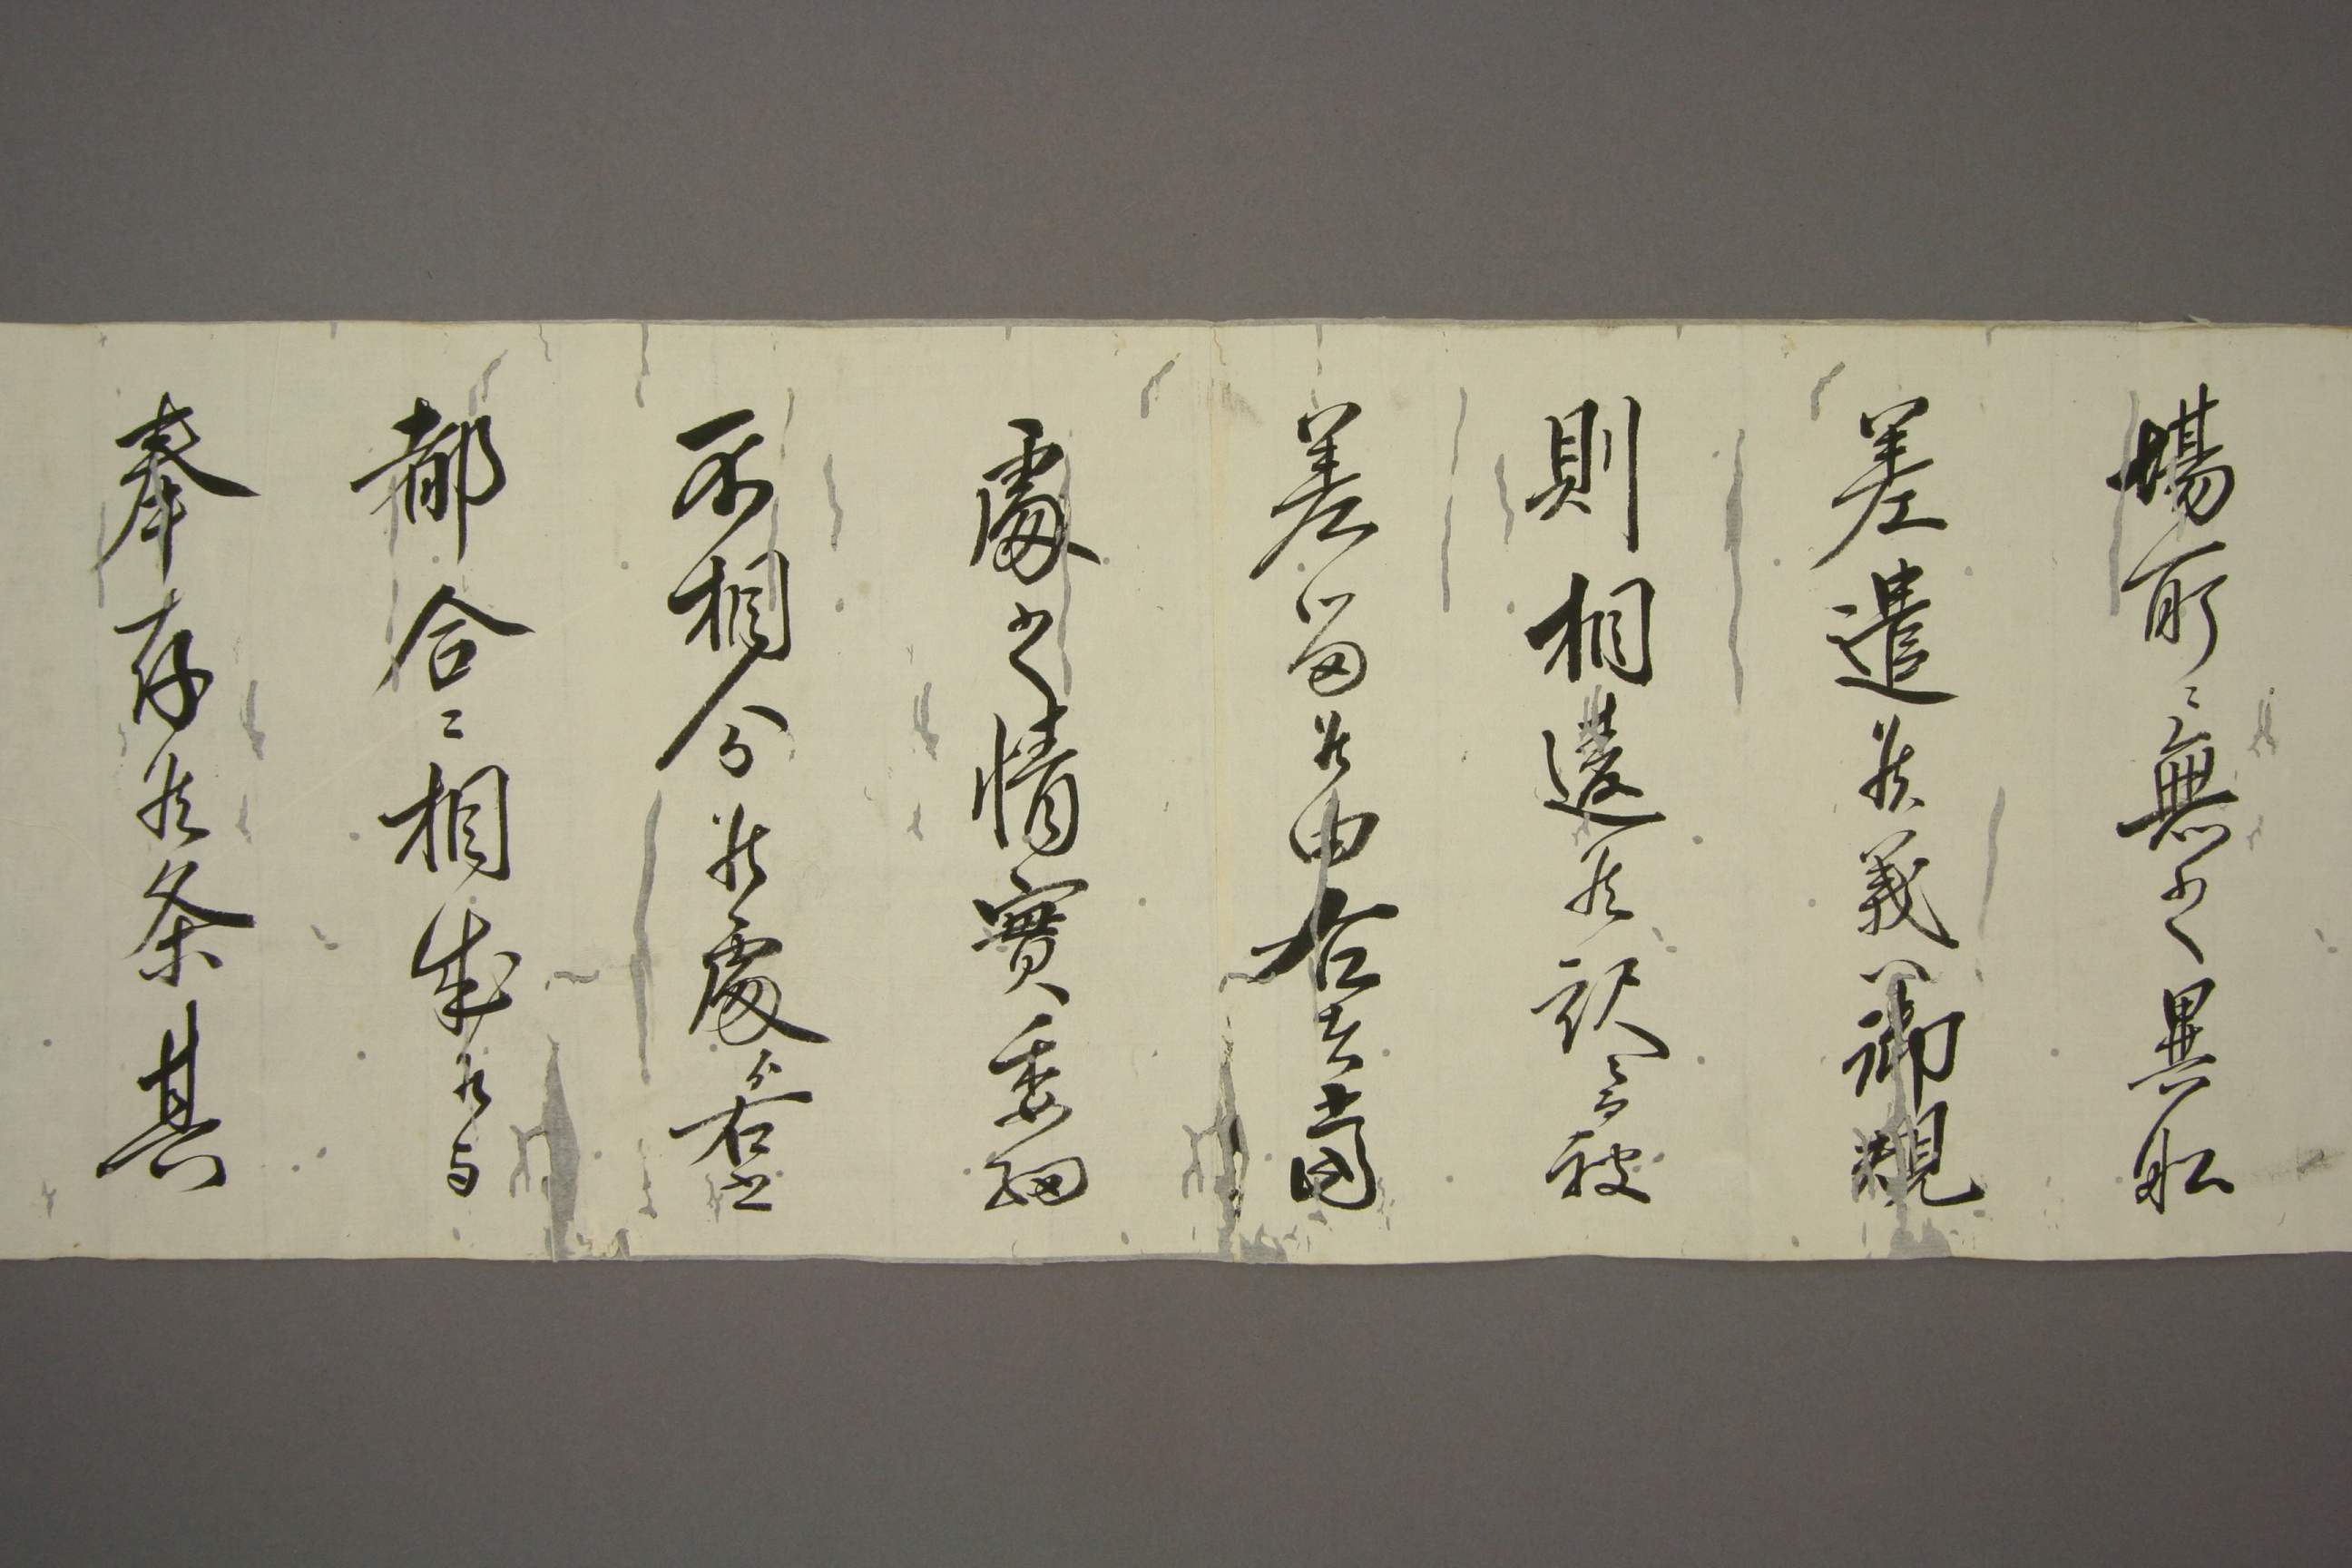 場所ニ無之異船
差遣候義ハ御規
則相違候訳ニ而被
差留候由右者當
處之情實委細
不相分候處ゟ右
都合ニ相成候与
奉存候条其